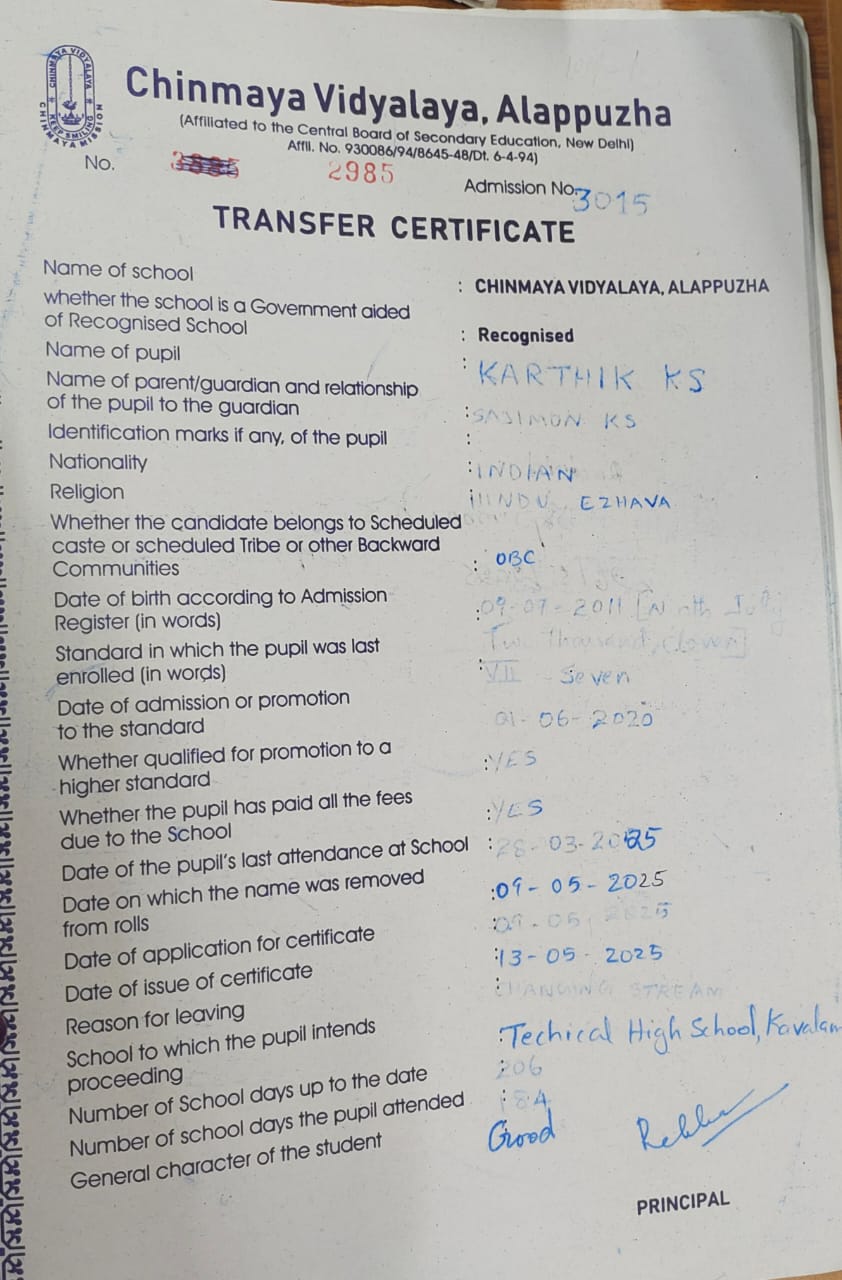 CHINMAYA VIDYALAYA
KEEP SMILING
CHINMAYA MISSION
Chinmaya Vidyalaya, Alappuzha
(Affiliated to the Central Board of Secondary Education, New Delhi)
Affil. No. 930086/94/8645-48/Dt. 6-4-94)
No. 2985 Admission No. 3015
TRANSFER CERTIFICATE
Name of school : CHINMAYA VIDYALAYA, ALAPPUZHA
whether the school is a Government aided
of Recognised School : Recognised
Name of pupil : KARTHIK KS
Name of parent/guardian and relationship
of the pupil to the guardian : SAJIMON KS
Identification marks if any, of the pupil :
Nationality : INDIAN
Religion : HINDU EZHAVA
Whether the candidate belongs to Scheduled
caste or scheduled Tribe or other Backward
Communities : OBC
Date of birth according to Admission
Register (in words) : 09-07-2011 [Ninth July
Two Thousand, Eleven]
Standard in which the pupil was last
enrolled (in words) : VII - Seven
Date of admission or promotion
to the standard 01-06-2020
Whether qualified for promotion to a
higher standard : YES
Whether the pupil has paid all the fees
due to the School : YES
Date of the pupil's last attendance at School : 28-03-2025
Date on which the name was removed
from rolls : 09-05-2025
Date of application for certificate : 09-05-2025
Date of issue of certificate : 13-05-2025
Reason for leaving : CHANGING STREAM
School to which the pupil intends
proceeding : Techical High School, Kavalam
Number of School days up to the date : 206
Number of school days the pupil attended : 184
General character of the student Good
PRINCIPAL